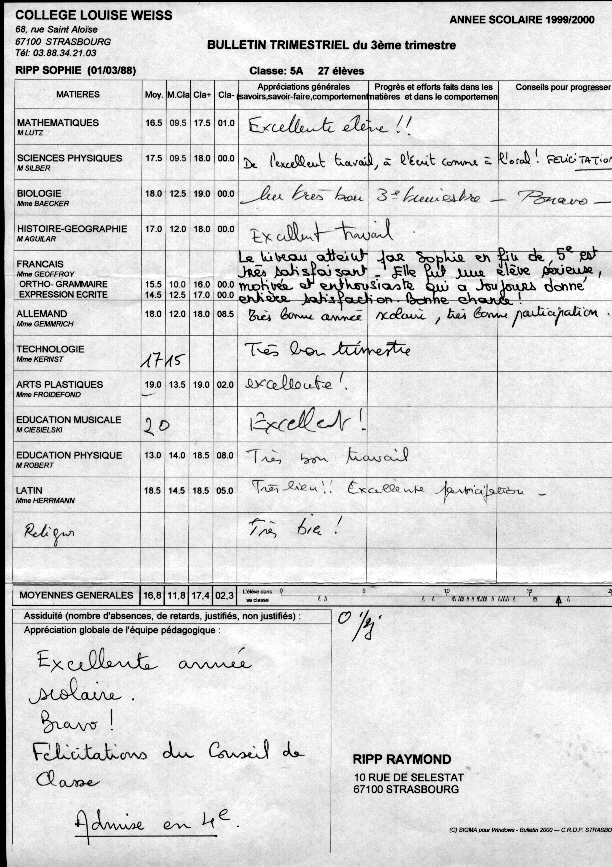 COLLEGE LOUISE WEISS
68, rue Saint Aloïse
67100 STRASBOURG
Tél: 03.88.34.21.03
ANNEE SCOLAIRE 1999/2000
BULLETIN TRIMESTRIEL du 3ème trimestre
RIPP SOPHIE (01/03/88) Classe: 5A 27 élèves
MATIERES Moy. M.Cla Cla+ Cla- Appréciations générales Progrès et efforts faits dans les Conseils pour progresser
(savoirs,savoir-faire,comportement) matières et dans le comportemen
MATHEMATIQUES 16.5 09.5 17.5 01.0 Excellente élève !!
M LUTZ
SCIENCES PHYSIQUES 17.5 09.5 18.0 00.0 De l'excellent travail, à l'écrit comme à l'oral ! FELICITATION
M SILBER
BIOLOGIE 18.0 12.5 19.0 00.0 Un très bon 3e trimestre - Bravo -
Mme BAECKER
HISTOIRE-GEOGRAPHIE 17.0 12.0 18.0 00.0 Excellent travail.
M AGUILAR
FRANCAIS Le niveau atteint par Sophie en fin de 5e est
Mme GEOFFROY très satisfaisant - Elle fut une élève sérieuse,
ORTHO- GRAMMAIRE 15.5 10.0 16.0 00.0 motivée et enthousiaste qui a toujours donné
EXPRESSION ECRITE 14.5 12.5 17.0 00.0 entière satisfaction. Bonne chance !
ALLEMAND 18.0 12.0 18.0 08.5 Très bonne année scolaire, très bonne participation.
Mme GEMMRICH
TECHNOLOGIE 17 15 Très bon trimestre
Mme KERNST
ARTS PLASTIQUES 19.0 13.5 19.0 02.0 excellente !
Mme FROIDEFOND
EDUCATION MUSICALE 20 Excellent !
M CIESIELSKI
EDUCATION PHYSIQUE 13.0 14.0 18.5 08.0 Très bon travail
M ROBERT
LATIN 18.5 14.5 18.5 05.0 Très bien !! Excellente participation -
Mme HERRMANN
Religion Très bien !
MOYENNES GENERALES 16,8 11,8 17,4 02,3 L'élève dans sa classe 0 5 10 15
Assiduité (nombre d'absences, de retards, justifiés, non justifiés) : 0
Appréciation globale de l'équipe pédagogique :
Excellente année
scolaire.
Bravo !
Félicitations du Conseil de
Classe
Admise en 4e.
RIPP RAYMOND
10 RUE DE SELESTAT
67100 STRASBOURG
(C) SIGMA pour Windows - Bulletin 2000 — C.R.D.P. STRASBO